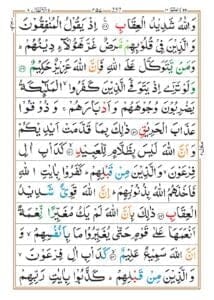 وَاللّٰهُ شَدِيْدُ الْعِقَابِ ۝ اِذْ يَقُوْلُ الْمُنٰفِقُوْنَ
وَالَّذِيْنَ فِيْ قُلُوْبِهِمْ مَّرَضٌ غَرَّ هٰٓؤُلَآءِ دِيْنُهُمْ ؕ
وَمَنْ يَّتَوَكَّلْ عَلَى اللّٰهِ فَاِنَّ اللّٰهَ عَزِيْزٌ حَكِيْمٌ ۝
وَلَوْ تَرٰٓى اِذْ يَتَوَفَّى الَّذِيْنَ كَفَرُوا ۙ الْمَلٰٓئِكَةُ
يَضْرِبُوْنَ وُجُوْهَهُمْ وَاَدْبَارَهُمْ ۚ وَذُوْقُوْا
عَذَابَ الْحَرِيْقِ ۝ ذٰلِكَ بِمَا قَدَّمَتْ اَيْدِيْكُمْ
وَاَنَّ اللّٰهَ لَيْسَ بِظَلَّامٍ لِّلْعَبِيْدِ ۝ كَدَاْبِ اٰلِ
فِرْعَوْنَ ۙ وَالَّذِيْنَ مِنْ قَبْلِهِمْ ؕ كَفَرُوْا بِاٰيٰتِ اللّٰهِ
فَاَخَذَهُمُ اللّٰهُ بِذُنُوْبِهِمْ ؕ اِنَّ اللّٰهَ قَوِيٌّ شَدِيْدُ
الْعِقَابِ ۝ ذٰلِكَ بِاَنَّ اللّٰهَ لَمْ يَكُ مُغَيِّرًا نِّعْمَةً
اَنْعَمَهَا عَلٰى قَوْمٍ حَتّٰى يُغَيِّرُوْا مَا بِاَنْفُسِهِمْ ۙ وَ
اَنَّ اللّٰهَ سَمِيْعٌ عَلِيْمٌ ۝ كَدَاْبِ اٰلِ فِرْعَوْنَ ۙ
وَالَّذِيْنَ مِنْ قَبْلِهِمْ ؕ كَذَّبُوْا بِاٰيٰتِ رَبِّهِمْ